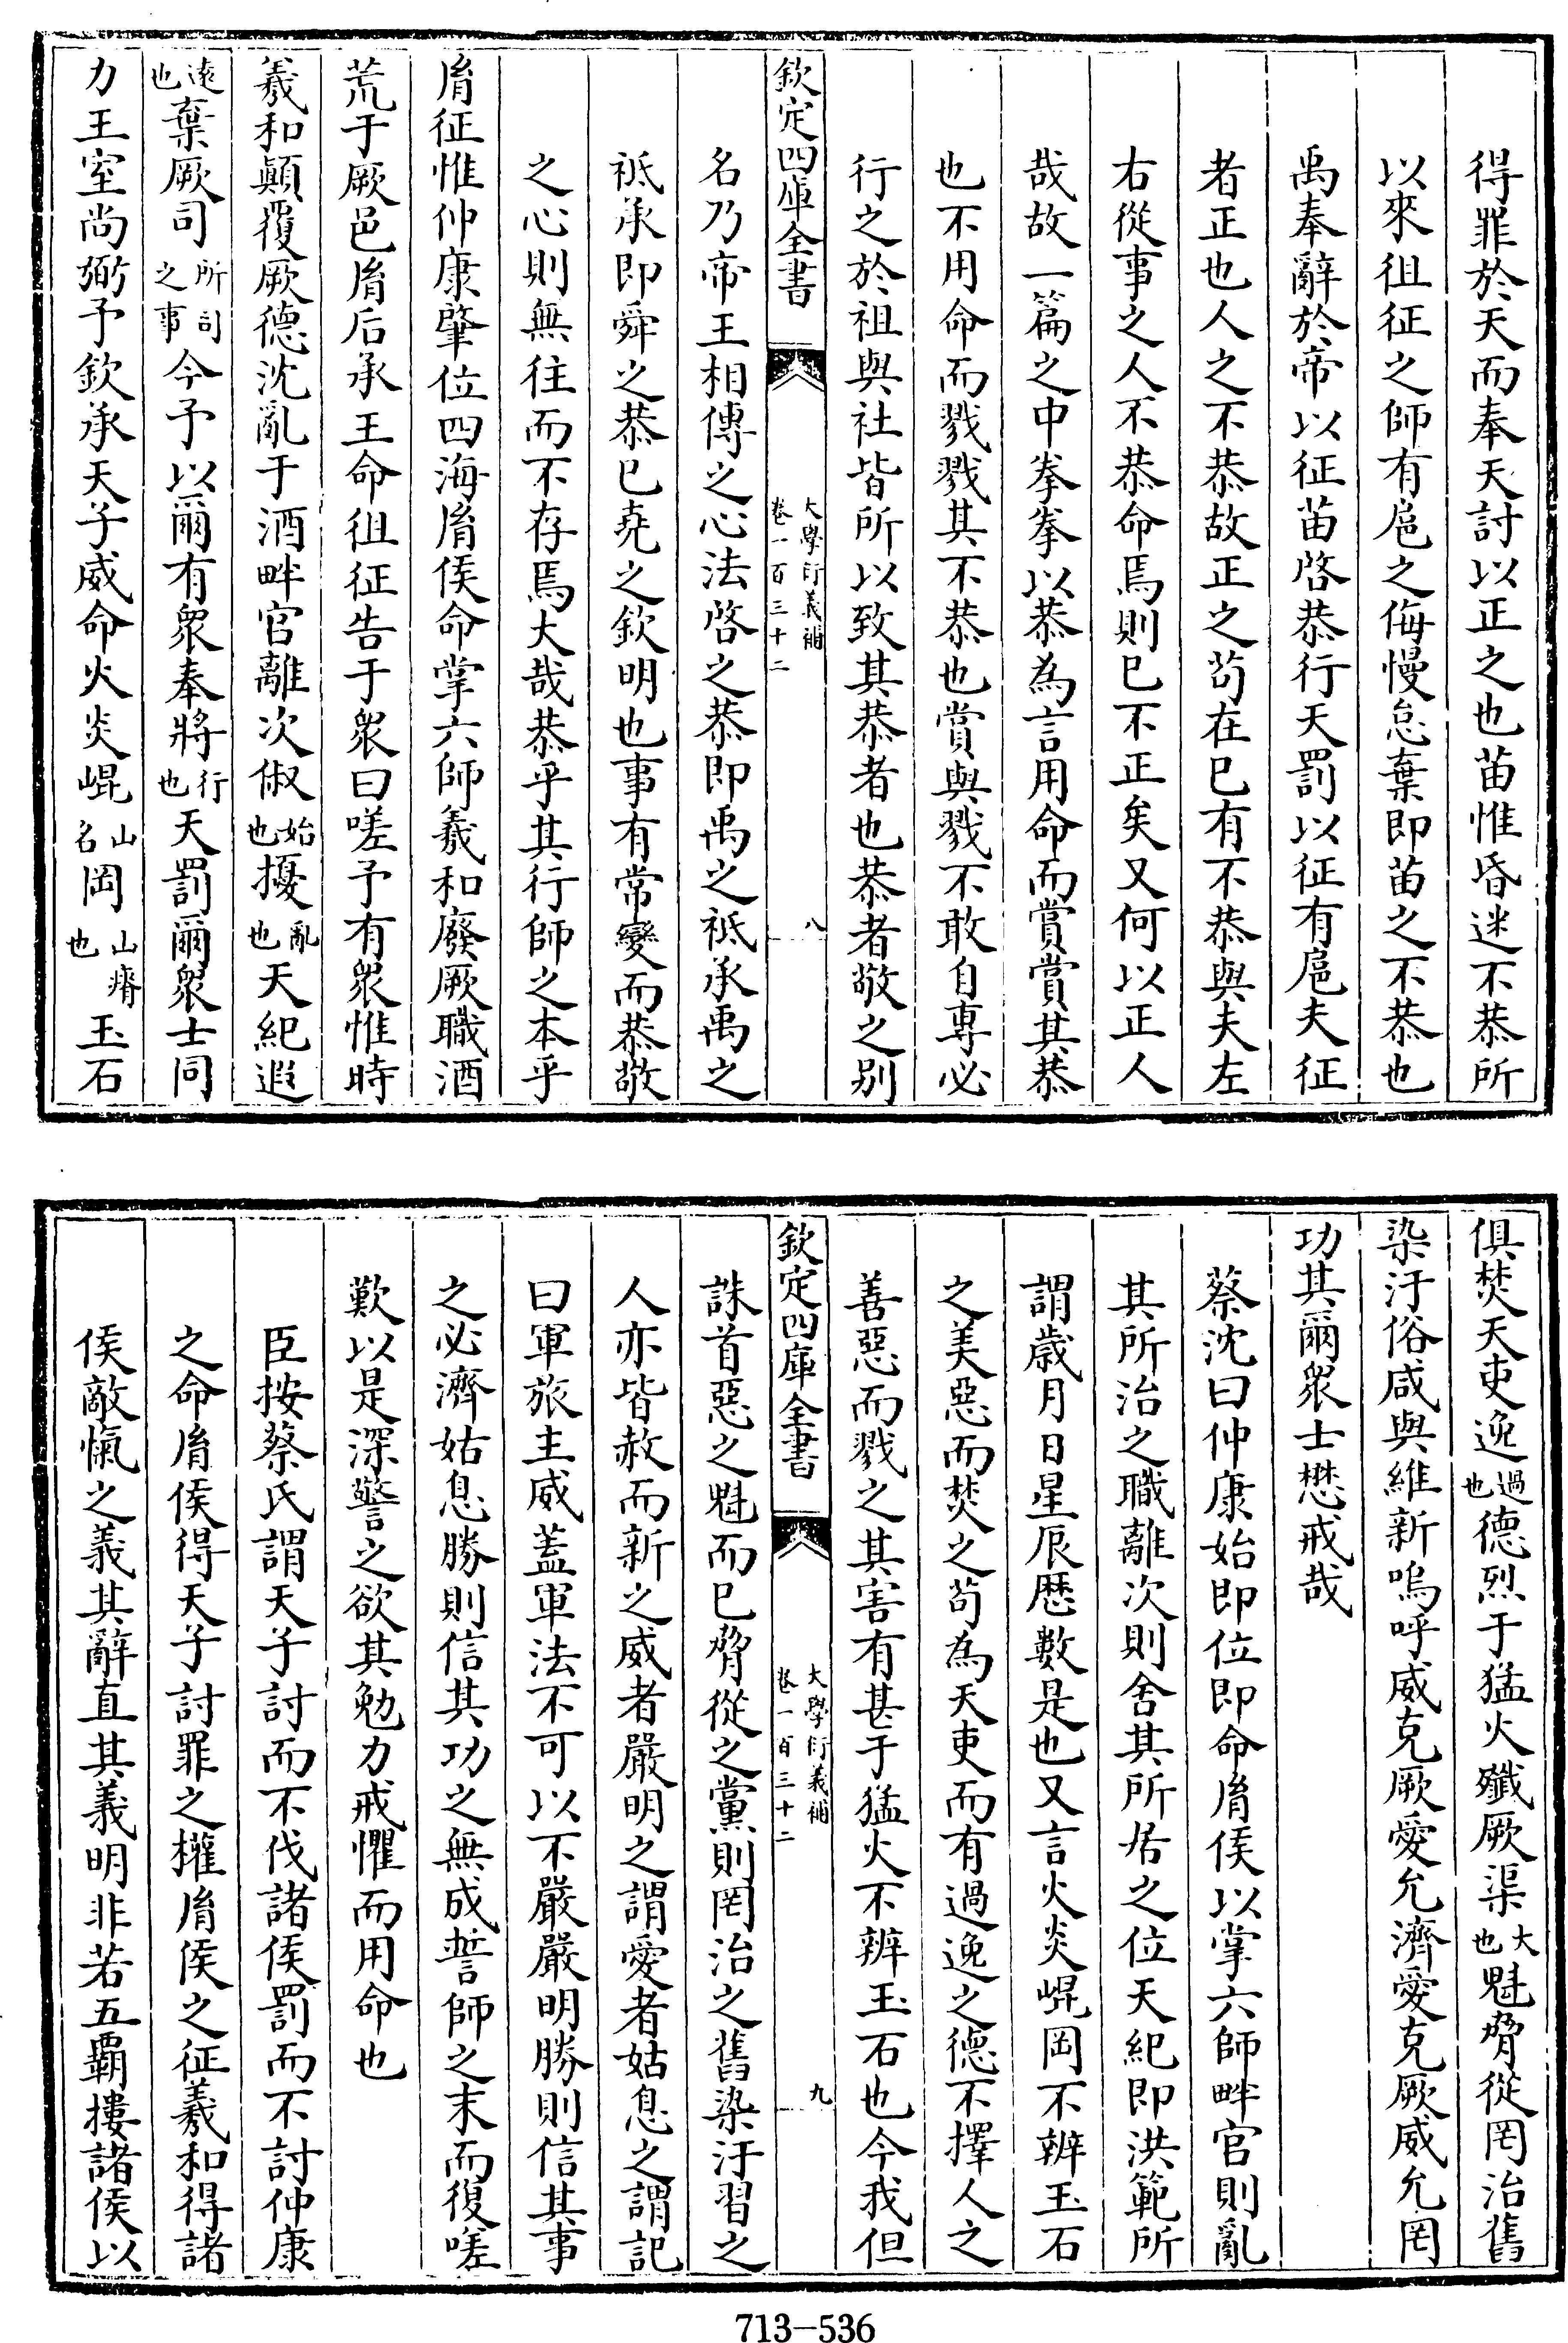 得罪於天而奉天討以正之也苗惟昏迷不恭所
以來徂征之師有扈之侮慢怠棄即苗之不恭也
禹奉辭於帝以征苗啓恭行天罰以征有扈夫征
者正也人之不恭故正之茍在已有不恭與夫左
右從事之人不恭命焉則已不正矣又何以正人
哉故一篇之中拳拳以恭為言用命而賞賞其恭
也不用命而戮戮其不恭也賞與戮不敢自專必
行之於祖與社皆所以致其恭者也恭者敬之别
欽定四庫全書
大學衍義補
卷一百三十二
八
名乃帝王相傳之心法啓之恭即禹之祗承禹之
祗承即舜之恭已堯之欽明也事有常變而恭敬
之心則無往而不存焉大哉恭乎其行師之本乎
胤征惟仲康肇位四海胤侯命掌六師羲和廢厥職酒
荒于厥邑胤后承王命徂征告于衆曰嗟予有衆惟時
羲和顛覆厥德沈亂于酒畔官離次俶始也擾亂也天紀遐
遠也棄厥司所司之事今予以爾有衆奉將行也天罰爾衆士同
力王室尚弼予欽承天子威命火炎崐山名岡山瘠也玉石
俱焚天吏逸過也德烈于猛火殲厥渠大也魁脅從罔治舊
染汙俗咸與維新嗚呼威克厥愛允濟愛克厥威允罔
功其爾衆士懋戒哉
蔡沈曰仲康始即位即命胤侯以掌六師畔官則亂
其所治之職離次則舍其所居之位天紀即洪範所
謂歲月日星辰歴數是也又言火炎崐岡不辨玉石
之美惡而焚之茍為天吏而有過逸之德不擇人之
善惡而戮之其害有甚于猛火不辨玉石也今我但
欽定四庫全書
大學衍義補
卷一百三十二
九
誅首惡之魁而已脅從之黨則罔治之舊染汙習之
人亦皆赦而新之威者嚴明之謂愛者姑息之謂記
曰軍旅主威蓋軍法不可以不嚴嚴明勝則信其事
之必濟姑息勝則信其功之無成誓師之末而復嗟
歎以是深警之欲其勉力戒懼而用命也
臣按蔡氏謂天子討而不伐諸侯罰而不討仲康
之命胤侯得天子討罪之權胤侯之征羲和得諸
侯敵愾之義其辭直其義明非若五覇摟諸侯以
713-536